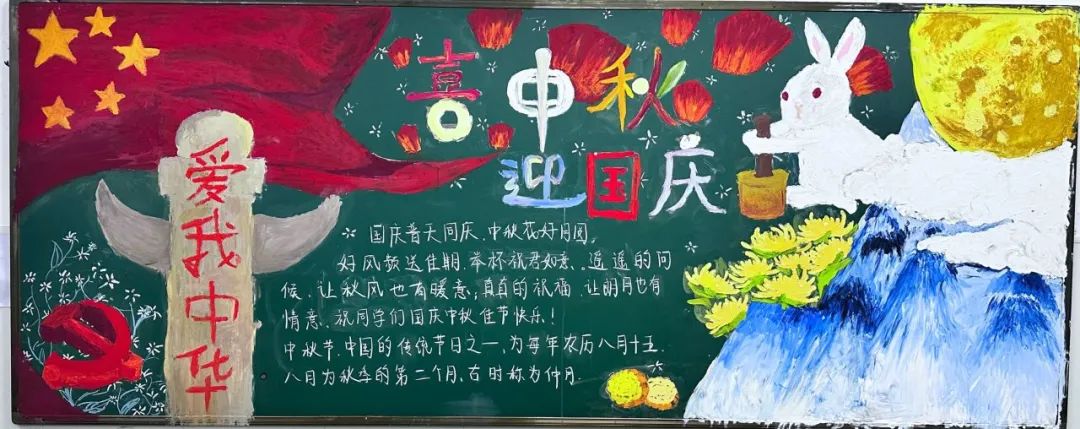 喜中秋
迎国庆
爱我中华
国庆普天同庆,中秋花好月圆。
好风频送佳期,举杯祝君如意。遥遥的问
候,让秋风也有暖意;真真的祝福,让明月也有
情意。祝同学们国庆中秋佳节快乐!
中秋节,中国的传统节日之一,为每年农历八月十五,
八月为秋季的第二个月,古时称为仲月